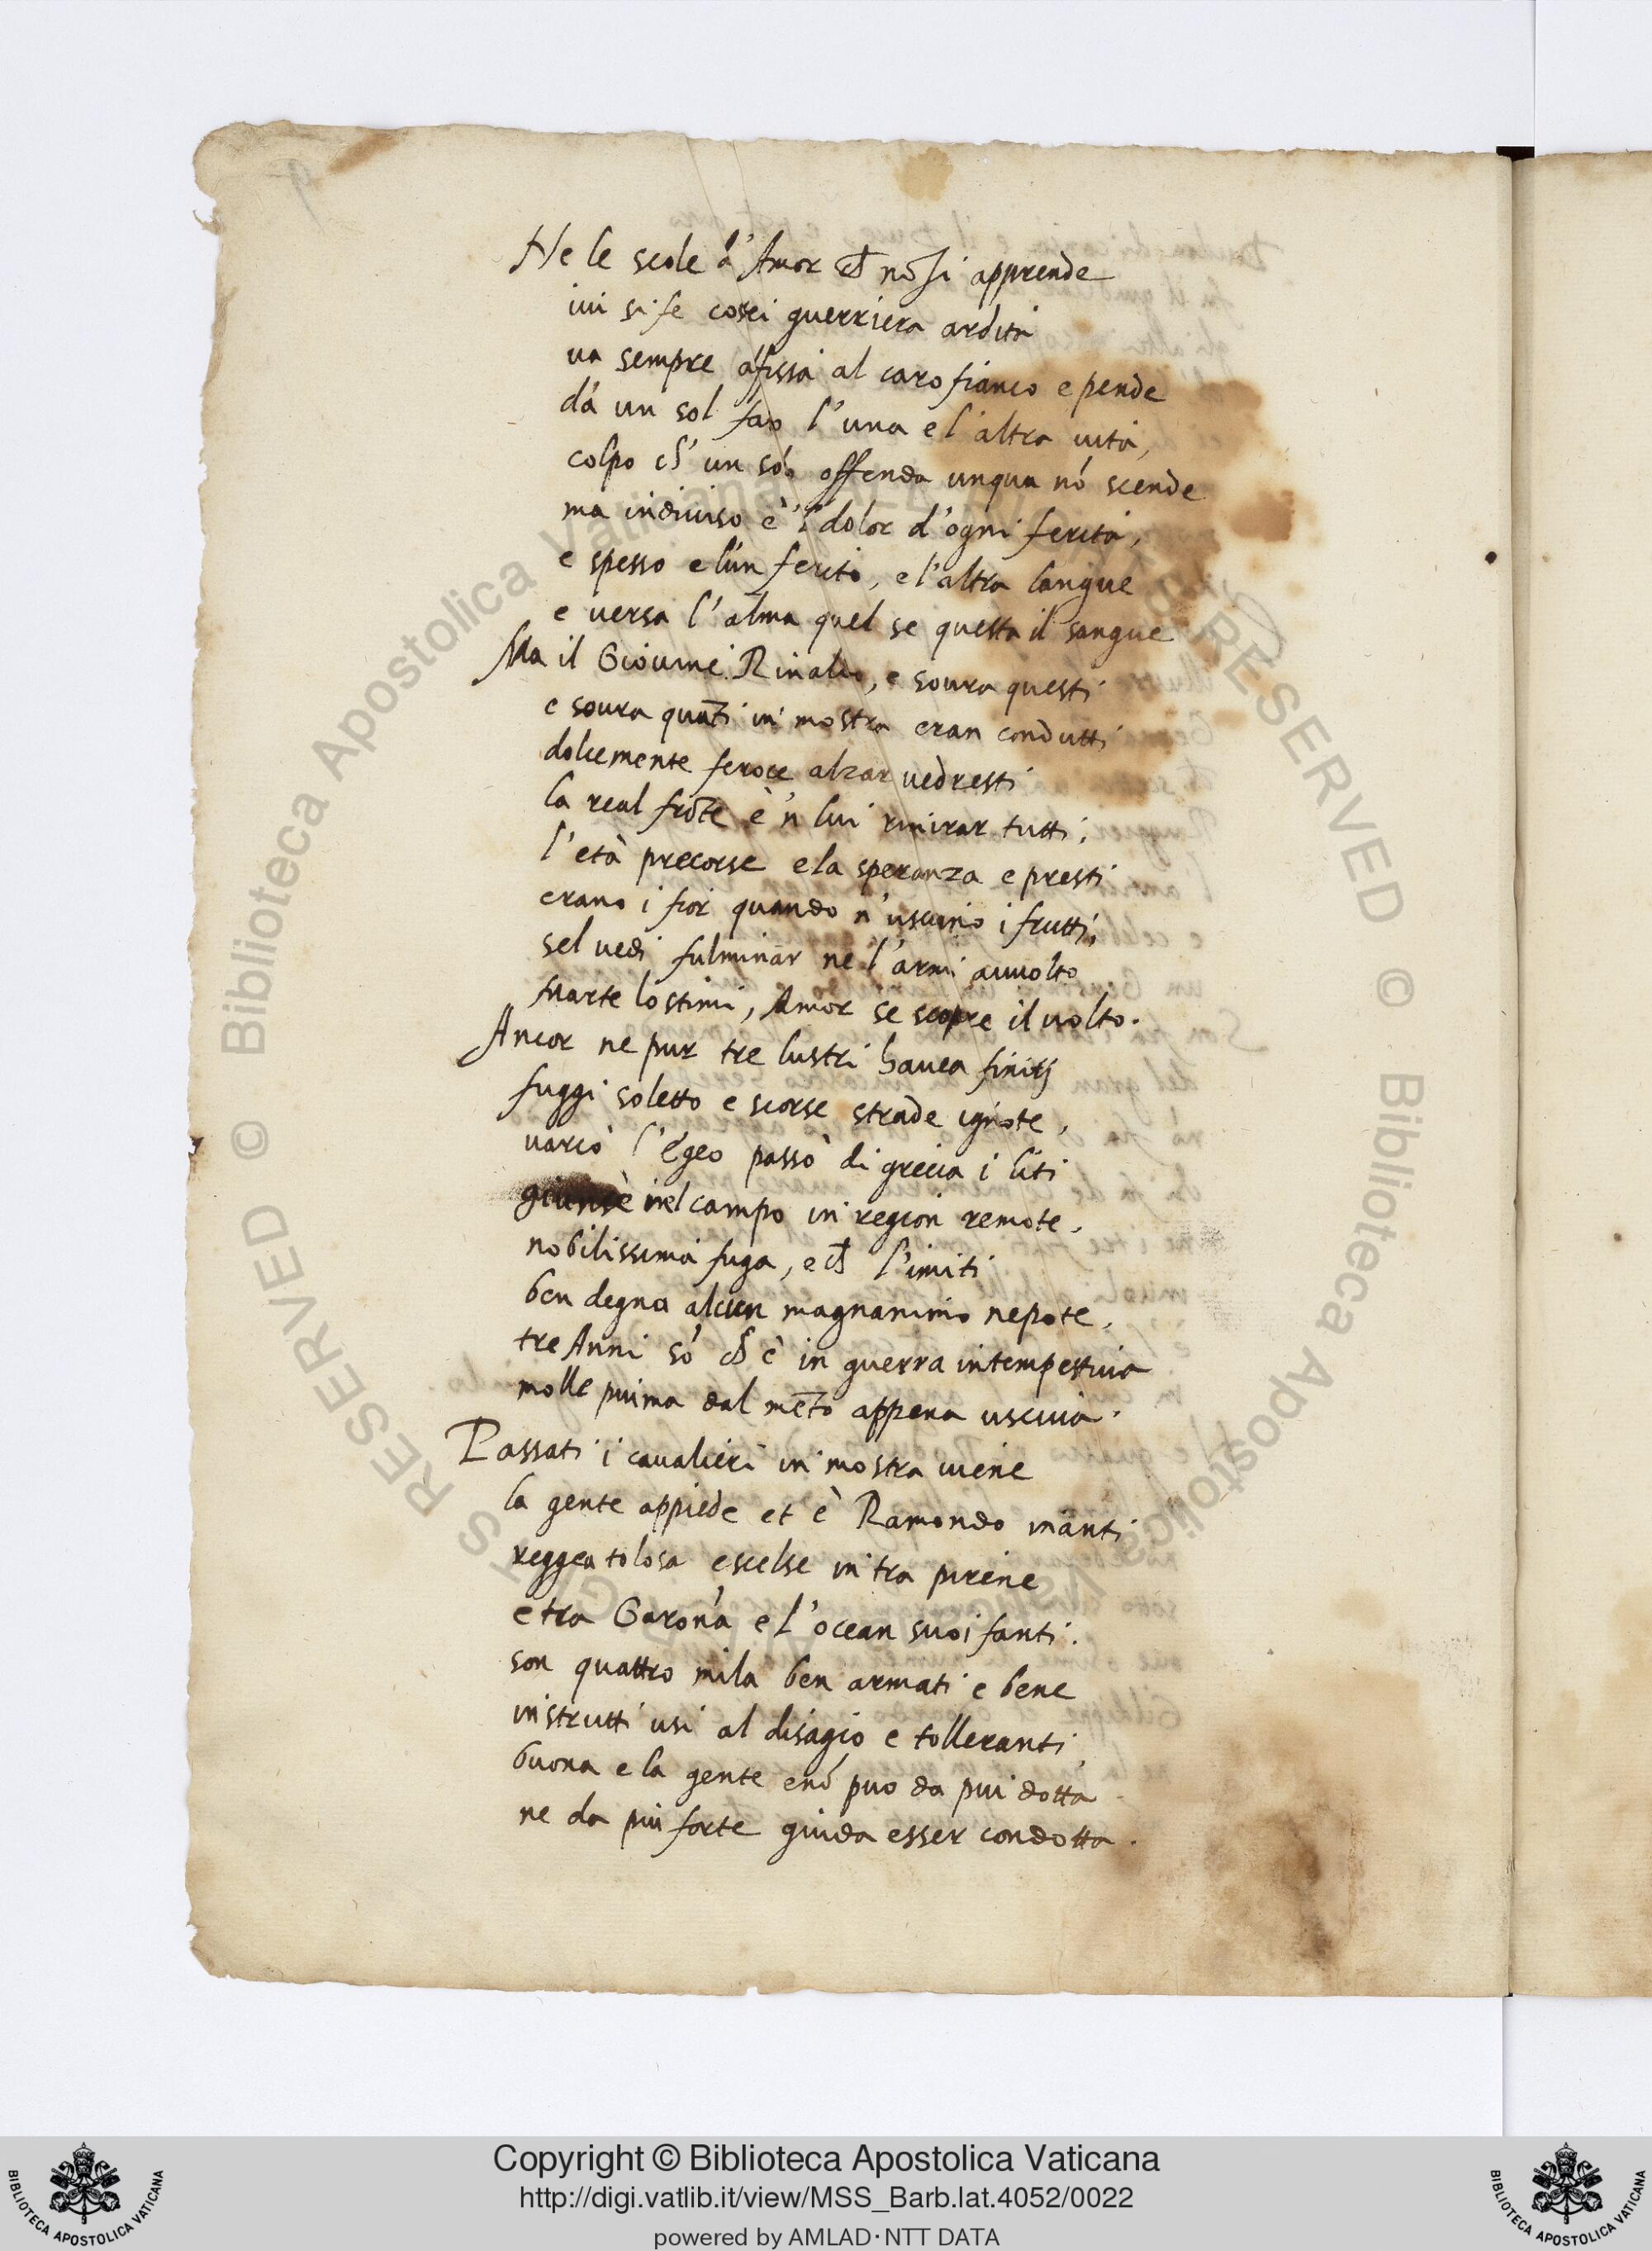 Ne le scole d'Amor ch nō si apprende
iui si fe costei guerriera ardita
ua sempre afissa al caro fianco e pende
da un sol fato l'una e l'altra uita,
colpo ch' un só offenda unqua nō scende
ma indiuiso è 'l dolor d'ogni ferita,
e spesso e l'un ferito, e l'altra langue
e uersa l'alma quel se questa il sangue
Ma il Giouine Rinaldo, e soura questi
e soura quāti in mostra eran condutti
dolcemente feroce alzar uedresti
la real frōte è 'n lui mirar tutti;
l'età precorse e la speranza e presti
erano i fior quando n'usciuno i frutti;
sel uedi fulminar ne l'armi auuolto
Marte lo stimi, Amor se scopre il uolto.
Ancor ne pur tre lustri hauea finitj
fuggi soletto e scorse strade ignote,
uarcò l'Egeo passò di grecia i liti
giunse nel campo in region remote,
nobilissima fuga, e ch l'imiti
ben degna alcun magnanimo nepote,
tre Anni só ch è in guerra intempestiua
molle piuma dal mēto appena usciuia.
Passati i cavalieri in mostra uiene
la gente appiede et è Ramondo inanti
reggea tolosa e scelse in tra pirene
e tra Garona e l'ocean suoi fanti.
son quattro mila ben armati e bene
instrutti usi al disagio e tolleranti
buona e la gente e nō puo da piu dotta
ne da piu forte guida esser condotta.
Copyright © Biblioteca Apostolica Vaticana
http://digi.vatlib.it/view/MSS_Barb.lat.4052/0022
powered by AMLAD·NTT DATA